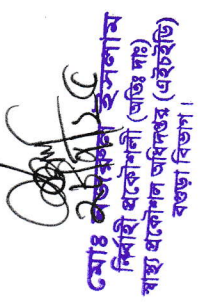 মোঃ নজরুল ইসলাম
নির্বাহী প্রকৌশলী (অতিঃ দাঃ)
স্বাস্থ্য প্রকৌশল অধিদপ্তর (এইচইডি)
বগুড়া বিভাগ।